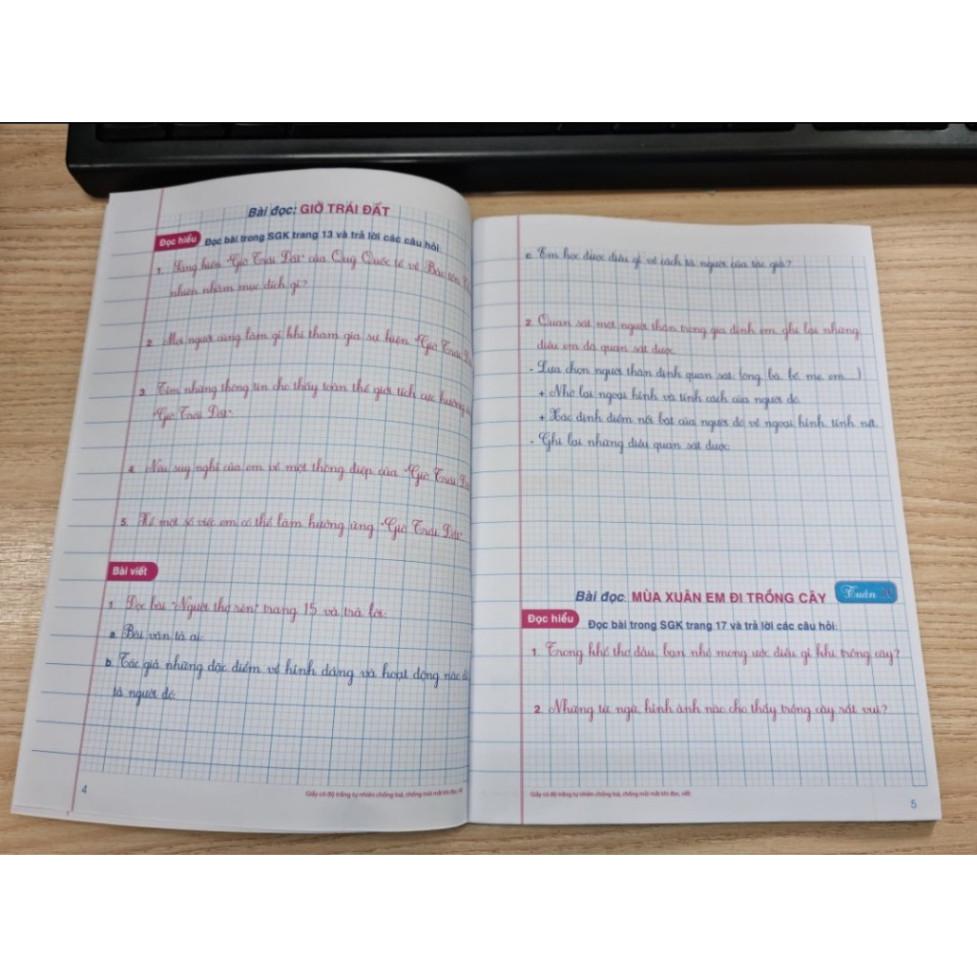 Bài đọc: GIỜ TRÁI ĐẤT
Đọc hiểu Đọc bài trong SGK trang 13 và trả lời các câu hỏi:
1. Sáng kiến "Giờ Trái Đất" của Quỹ Quốc tế về Bảo tồn
nhiên nhằm mục đích gì?
2. Mọi người cùng làm gì khi tham gia sự kiện "Giờ Trái Đất
3. Tìm những thông tin cho thấy toàn thế giới tích cực hưởng
"Giờ Trái Đất".
4. Nêu suy nghĩ của em về một thông điệp của "Giờ Trái Đất
5. Kể một số việc em có thể làm hưởng ứng "Giờ Trái Đất".
Bài viết
1. Đọc bài "Người thợ rèn" trang 15 và trả lời:
a. Bài văn tả ai:
b. Tác giả những đặc điểm về hình dáng và hoạt động nào
tả người đó:
4
Giấy có độ trắng tự nhiên chống loá, chống mỏi mắt khi đọc, viết
c. Em học được điều gì về cách tả người của tác giả?
2. Quan sát một người thân trong gia đình em, ghi lại những
điều em đã quan sát được.
- Lựa chọn người thân định quan sát (ông, bà, bố, mẹ, em...)
+ Nhớ lại ngoại hình và tính cách của người đó.
+ Xác định điểm nổi bật của người đó về ngoại hình, tính nết.
- Ghi lại những điều quan sát được.
Bài đọc: MÙA XUÂN EM ĐI TRỒNG CÂY Tuần
Đọc hiểu Đọc bài trong SGK trang 17 và trả lời các câu hỏi:
1. Trong khổ thơ đầu, bạn nhỏ mong ước điều gì khi trồng cây?
2. Những từ ngữ, hình ảnh nào cho thấy trồng cây rất vui?
Giấy có độ trắng tự nhiên chống loá, chống mỏi mắt khi đọc, viết
5